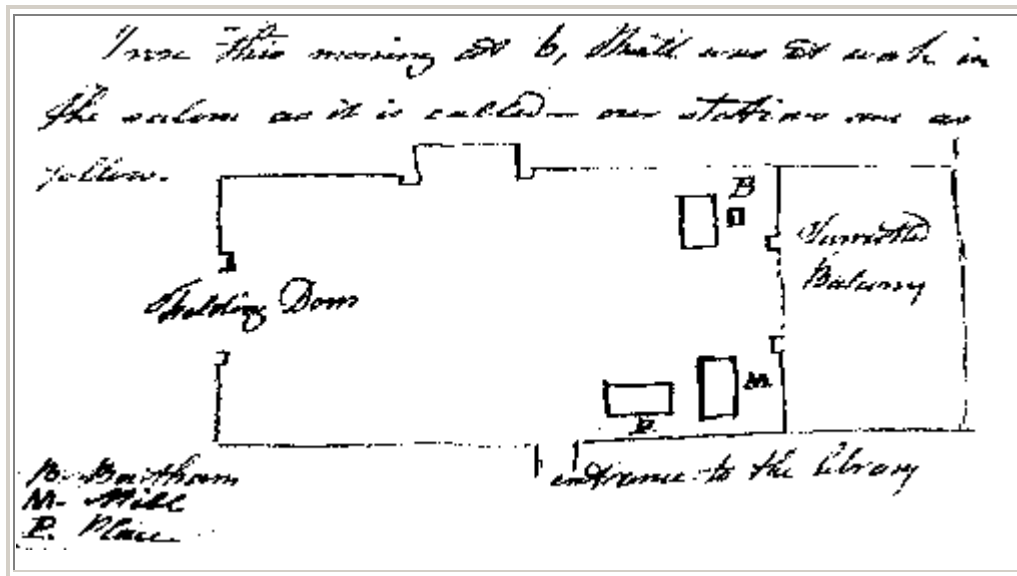 I rose this morning at 6, Mill was at work in
the saloon as it is called – our stations are as
follow.
B
Balcony
Folding Doors
M.
P.
entrance to the library
B. Bentham
M. Mill
P. Place